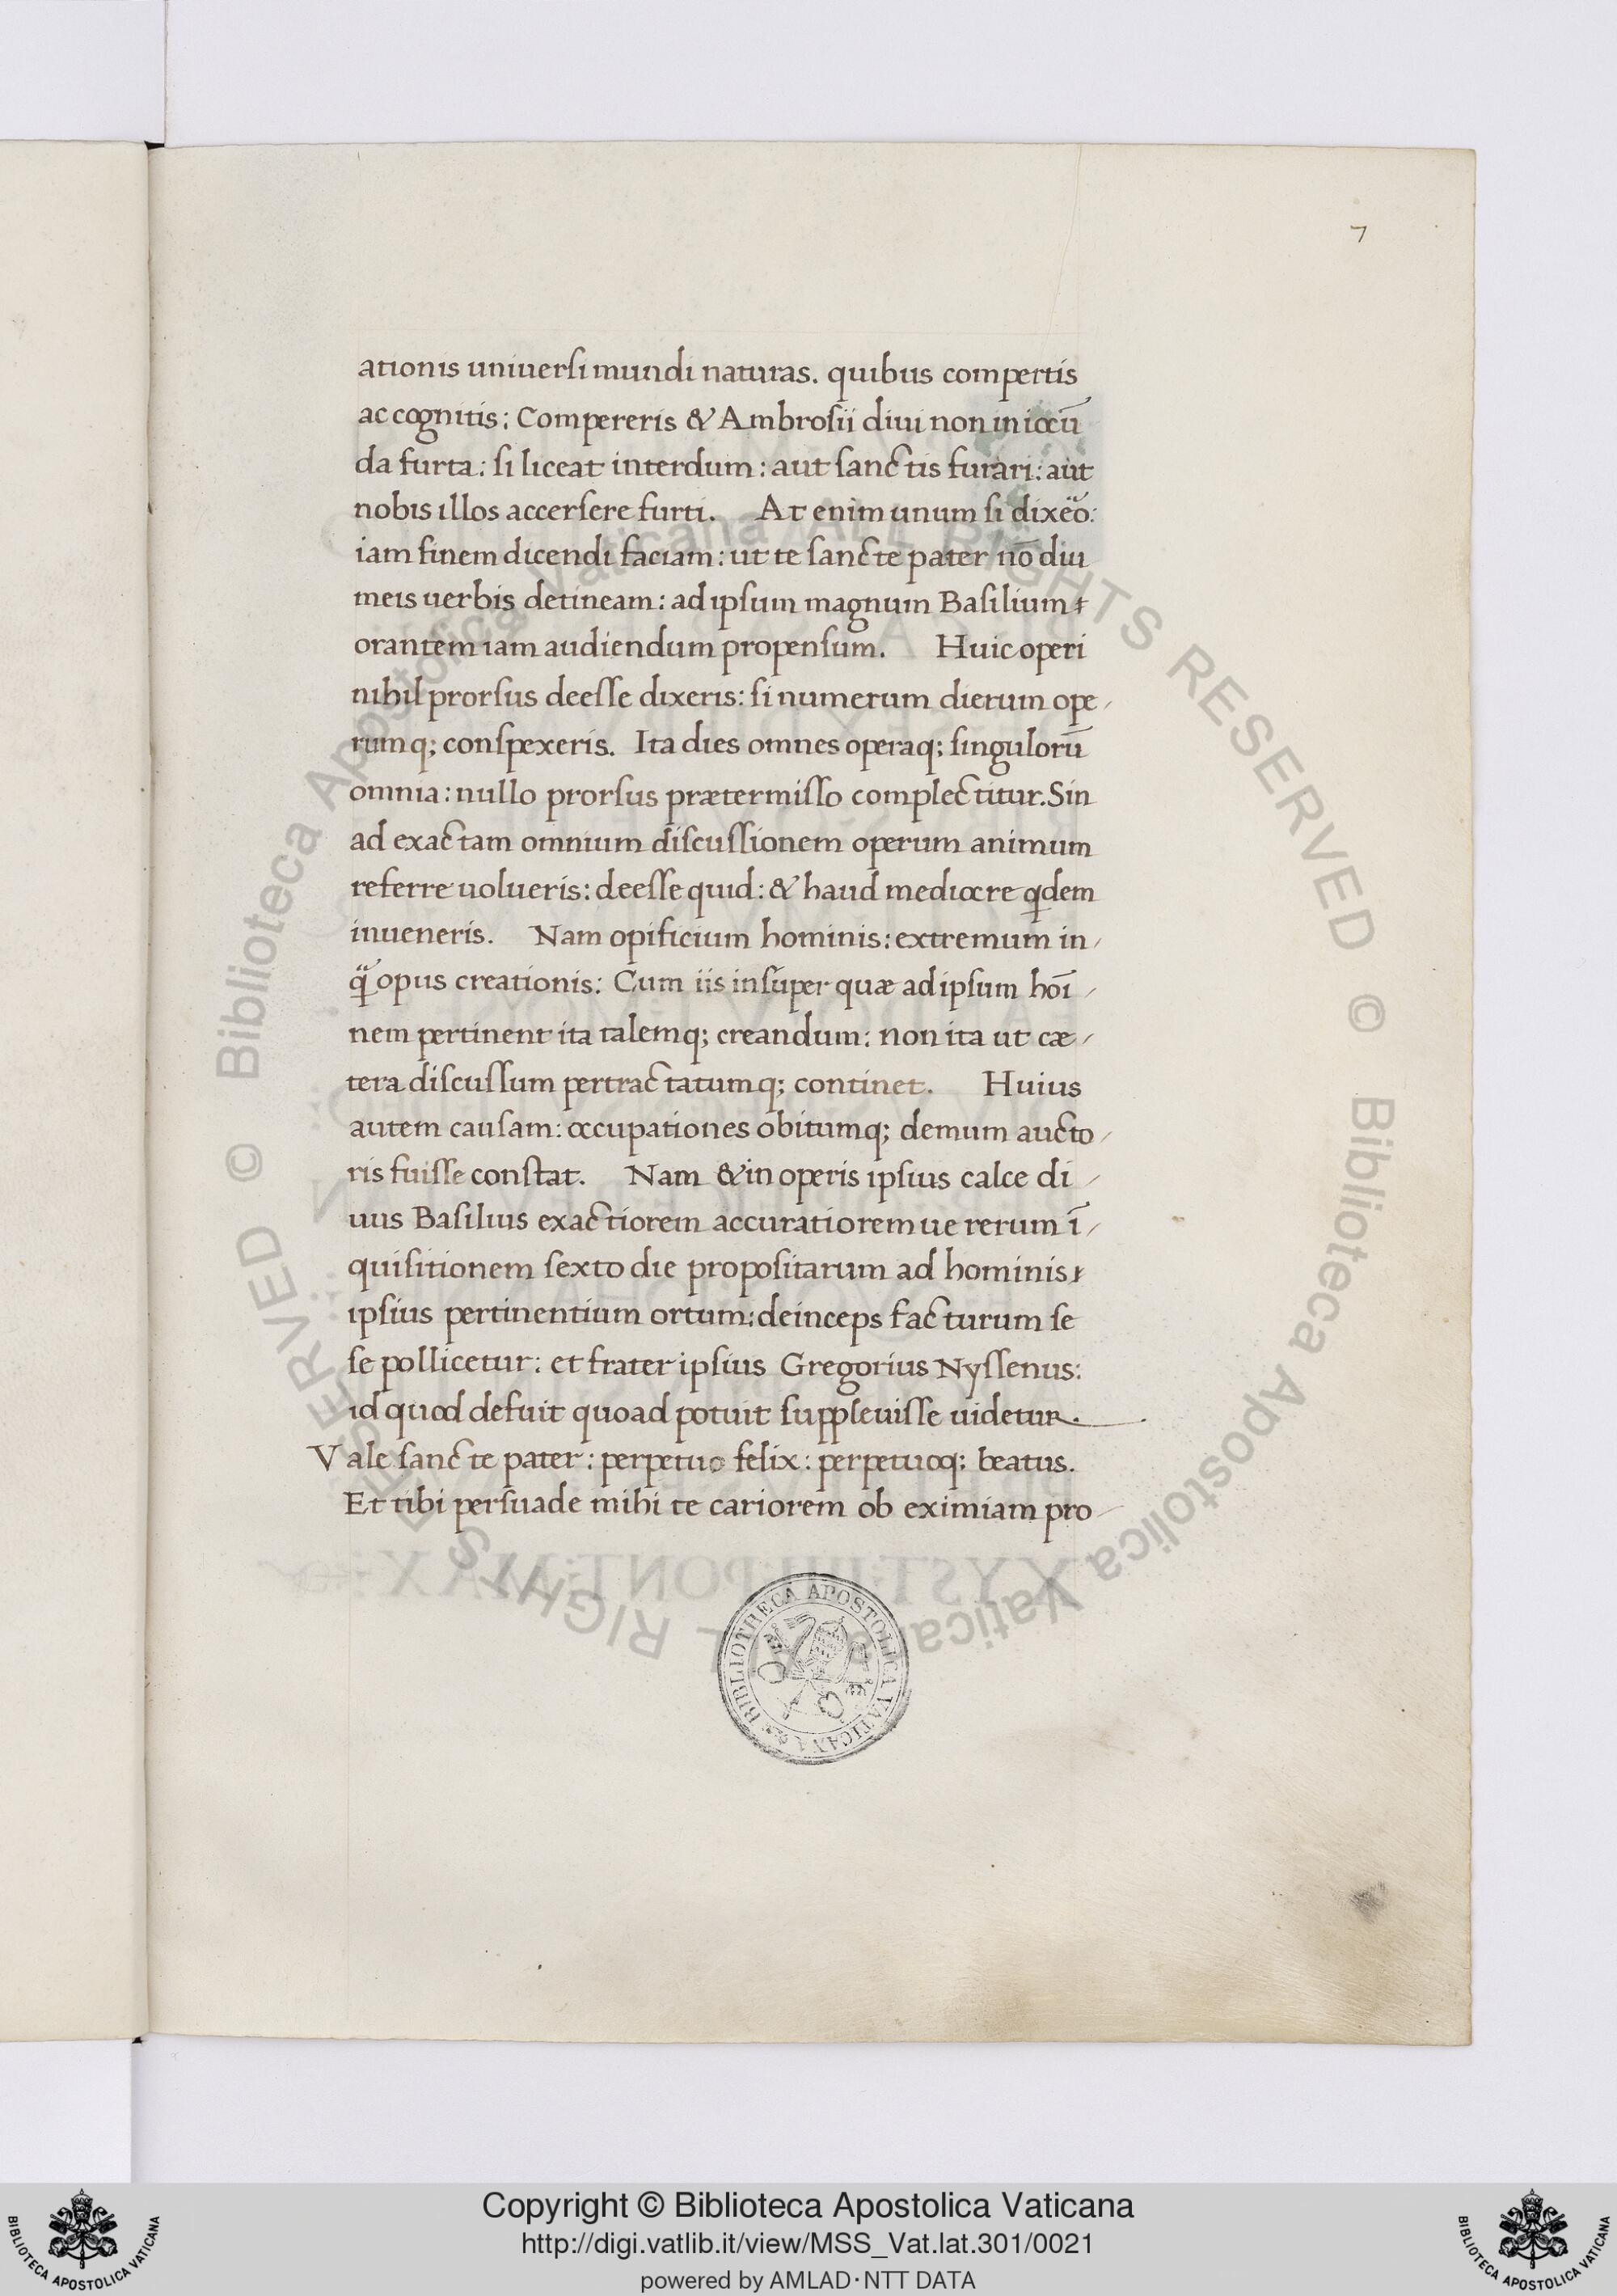 7
ationis uniuersi mundi naturas. quibus compertis
ac cognitis: Compereris & Ambrosii diui non iniocū
da furta: si liceat interdum: aut sanctis furari: aut
nobis illos accersere furti. At enim unum si dixeo:
iam finem dicendi faciam: ut te sancte pater nō diu
meis uerbis detineam: ad ipsum magnum Basilium
orantem iam audiendum propensum. Huic operi
nihil prorsus deesse dixeris: si numerum dierum ope/
rumq; conspexeris. Ita dies omnes operaq; singulorū
omnia: nullo prorsus prætermisso complectitur. Sin
ad exactam omnium discussionem operum animum
referre uolueris: deesse quid: & haud mediocre qdem
inueneris. Nam opificium hominis: extremum in/
q̃ opus creationis: Cum iis insuper quæ ad ipsum hoī/
nem pertinent ita talemq; creandum: non ita ut cæ/
tera discussum pertractatumq; continet. Huius
autem causam: occupationes obitumq; demum aucto/
ris fuisse constat. Nam & in operis ipsius calce di/
uus Basilius exactiorem accuratiorem ue rerum ī/
quisitionem sexto die propositarum ad hominis
ipsius pertinentium ortum: deinceps facturum se
se pollicetur: et frater ipsius Gregorius Nyssenus:
id quod defuit quoad potuit supplevisse uidetur.
Vale sancte pater: perpetuo felix: perpetuoq; beatus.
Et tibi persuade mihi te cariorem ob eximiam pro/
BIBLIOTHECA APOSTOLICA VATICANA
© Biblioteca Apostolica Vaticana ALL RIGHTS RESERVED © Biblioteca Apostolica Vaticana ALL RIGHTS RESERVED
Copyright © Biblioteca Apostolica Vaticana
http://digi.vatlib.it/view/MSS_Vat.lat.301/0021
powered by AMLAD·NTT DATA
BIBLIOTECA APOSTOLICA VATICANA
BIBLIOTECA APOSTOLICA VATICANA